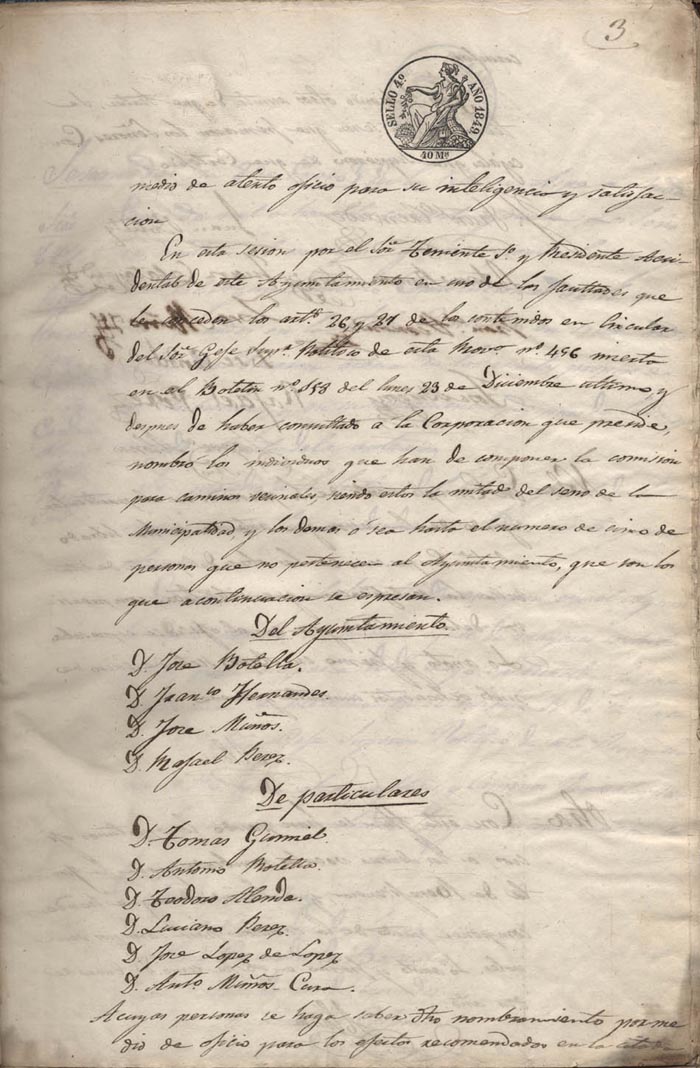 3
SELLO 4º AÑO 1849
40 Ms
medio de atento oficio para su inteligencia y satisfac-
cion
En esta sesion por el Sor. Teniente 1º y Presidente Acci-
dental de este Ayuntamiento en uso de las facultades que
le conceden los artos. 26 y 27 de los contenidos en Circular
del Sor. Gefe Supr. Politico de esta Prova. nº. 456 inserta
en el Boletin nº. 153 del lunes 23 de Diciembre ultimo, y
despues de haber consultado a la Corporacion que preside,
nombró los individuos que han de componer la comision
para caminos vecinales, siendo estos la mitad del seno de la
Municipalidad, y los demas o sea hasta el numero de cinco de
personas que no pertenecen al Ayuntamiento, que son los
que a continuacion se espresan.
Del Ayuntamiento
D. Jose Botella.
D. Franco. Hernandes.
D. Jose Muños.
D. Rafael Perez.
De particulares
D. Tomas Gumiel.
D. Antonio Botella.
D. Teodoro Alenda.
D. Luciano Perez.
D. Jose Lopez de Lopez
D. Anto. Muños Cura.
A cuyas personas se haga saber dho nombramiento por me
dio de oficio para los efectos recomendados en la citada